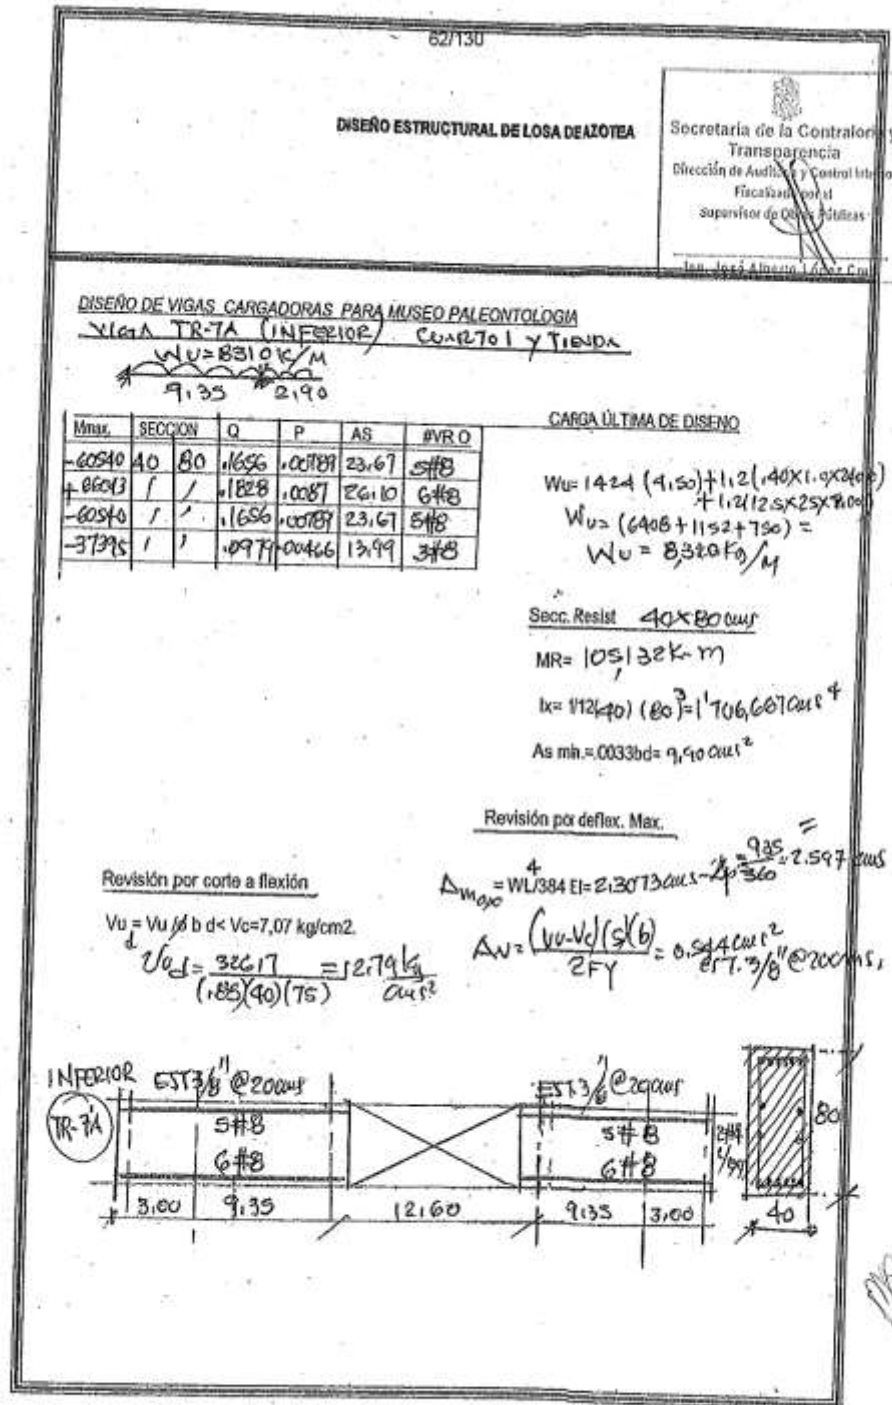 62/130
DISEÑO ESTRUCTURAL DE LOSA DE AZOTEA
Secretaría de la Contraloría y
Transparencia
Dirección de Auditoría y Control Interno
Fiscalizado por el
Supervisor de Obras Públicas
Ing. José Alberto López
DISEÑO DE VIGAS CARGADORAS PARA MUSEO PALEONTOLOGIA
VIGA TR-7A (INFERIOR) CUARTO 1 Y TIENDA
WU=8310 K/M
9.35 2.90
Mmax. SECCION Q P AS #VR O
-60540 40 80 .1656 .00789 23.67 5#8
+66013 / / .1828 .0087 26.10 6#8
-60540 / / .1656 .00789 23.67 5#8
-37395 / / .0979 .00466 13.99 3#8
CARGA ÚLTIMA DE DISENO
Wu= 1424 (4.50)+1.2(.40X1.0X2400)
+1.2(12.5X.25X
Wu= (6408+1152+750) =
Wu = 8,320 Kg/M
Secc. Resist 40X80 cms
MR= 105,132 K-m
Ix= 1/12(40) (80)³=1'706,667 cms⁴
As min.=.0033bd= 9.90 cms²
Revisión por deflex. Max.
Δmax = WL⁴/384 EI= 2.3073 cms = 935/360 = 2.597 cms
Revisión por corte a flexión
Vu = Vu /ø b d< Vc=7,07 kg/cm2.
d
Vud= 32617/(.85)(40)(75) = 12.79 kg/cms²
Av= (Vu-Vc)(s)(b)/2FY = 0.544 cms²
EST. 3/8" @20cms.
INFERIOR EST 3/8" @20cms EST. 3/8" @20cms
TR-7A 5#8 5#8 80
6#8 6#8
3.00 9.35 12.60 9.35 3.00 40